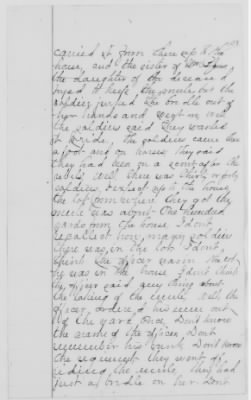 carried it from there up to the
house, and the sister of
the daughter of the deceased
tryed to keep the mule but the
soldiers jerked the bridle out of
her hands and went on with
the soldiers said they wanted
to ride, the soldiers came there
a foot and on horses. They said
they had been on a scout after the
rebels. Well there was thirty or forty
soldiers, went up to the house,
the lot from where they got the
mule was about One hundred
yards from the house. I dont
recollect how many soldiers
there was in the lot. I dont
think the officer was in the
was in the house I dont think
the officer said any thing about
the taking of the mule. Well the
officer ordered his men out
of the yard once. Dont know
the name of the officer, Dont
remember his rank. Dont know
the regiment they went
riding the mule, they had
just a bridle on her. Dont